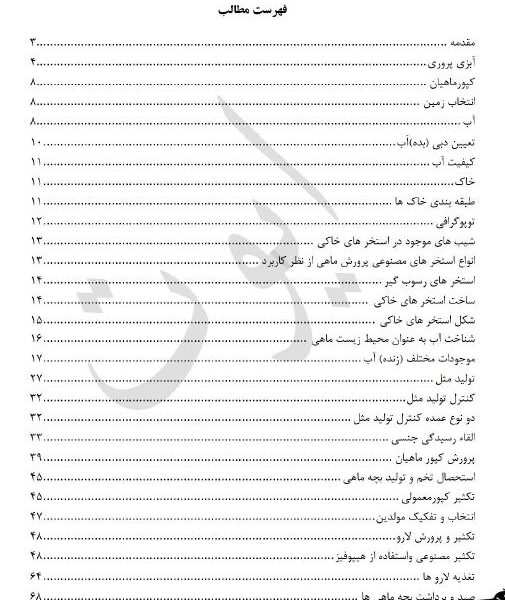 فهرست مطالب
مقدمه ........ ۳
آبزی پروری ........ ۴
کپورماهیان ........ ۸
انتخاب زمین ........ ۸
آب ........ ۸
تعیین دبی (بده)آب ........ ۱۰
کیفیت آب ........ ۱۱
خاک ........ ۱۱
طبقه بندی خاک ها ........ ۱۱
توپوگرافی ........ ۱۲
شیب های موجود در استخر های خاکی ........ ۱۳
انواع استخر های مصنوعی پرورش ماهی از نظر کاربرد ........ ۱۳
استخر های رسوب گیر ........ ۱۴
ساخت استخر های خاکی ........ ۱۴
شکل استخر های خاکی ........ ۱۵
شناخت آب به عنوان محیط زیست ماهی ........ ۱۶
موجودات مختلف (زنده) آب ........ ۱۷
تولید مثل ........ ۲۷
کنترل تولید مثل ........ ۳۲
دو نوع عمده کنترل تولید مثل ........ ۳۲
القاء رسیدگی جنسی ........ ۳۳
پرورش کپور ماهیان ........ ۳۹
استحصال تخم و تولید بچه ماهی ........ ۴۵
تکثیر کپورمعمولی ........ ۴۵
انتخاب و تفکیک مولدین ........ ۴۷
تکثیر و پرورش لارو ........ ۴۸
تکثیر مصنوعی واستفاده از هیپوفیز ........ ۴۸
تغذیه لارو ها ........ ۶۴
صید و برداشت بچه ماهی ها ........ ۶۸